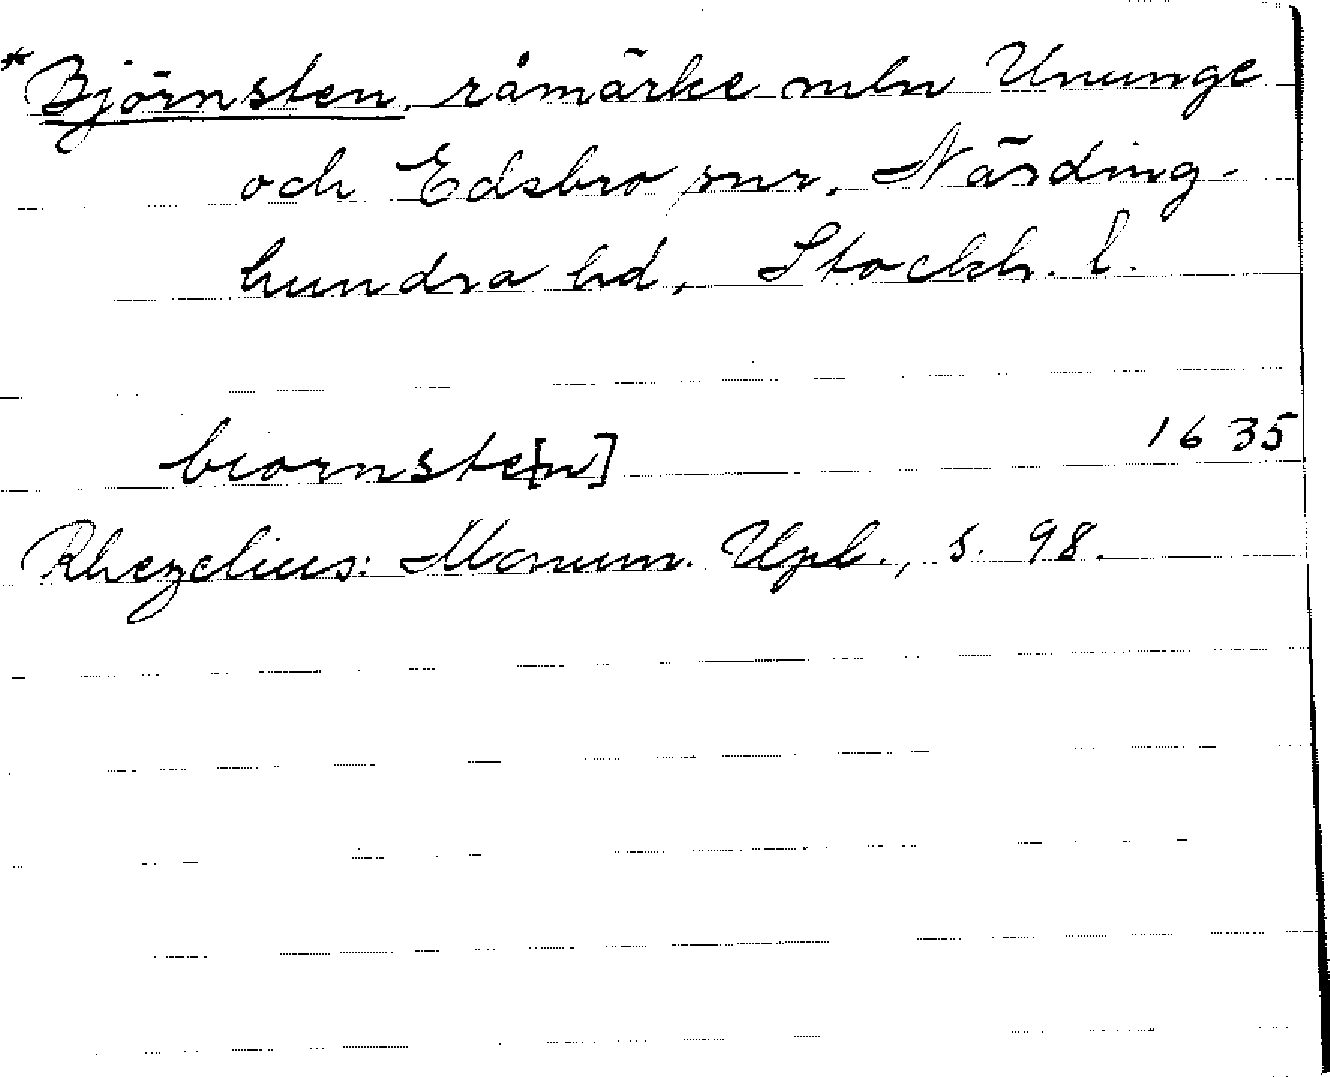 *Björnsten, råmärke mln Ununge
och Edsbro snr, Närding-
hundra hd, Stockh. l.
biornste[n] 1635
Rhezelius: Monum. Upl., s. 98.